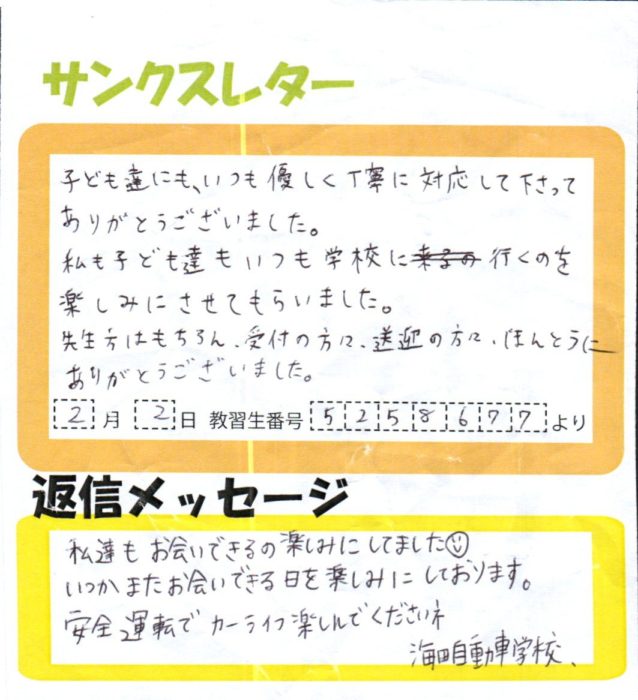 サンクスレター
子ども達にも、いつも優しく丁寧に対応して下さって
ありがとうございました。
私も子ども達もいつも学校に来るの行くのを
楽しみにさせてもらいました。
先生方はもちろん、受付の方々、送迎の方々、ほんとうに
ありがとうございました。
2月 2日 教習生番号 5258677より
返信メッセージ
私達もお会いできるの楽しみにしてました☺
いつかまたお会いできる日を楽しみにしております。
安全運転でカーライフ楽しんでくださいネ
海田自動車学校、